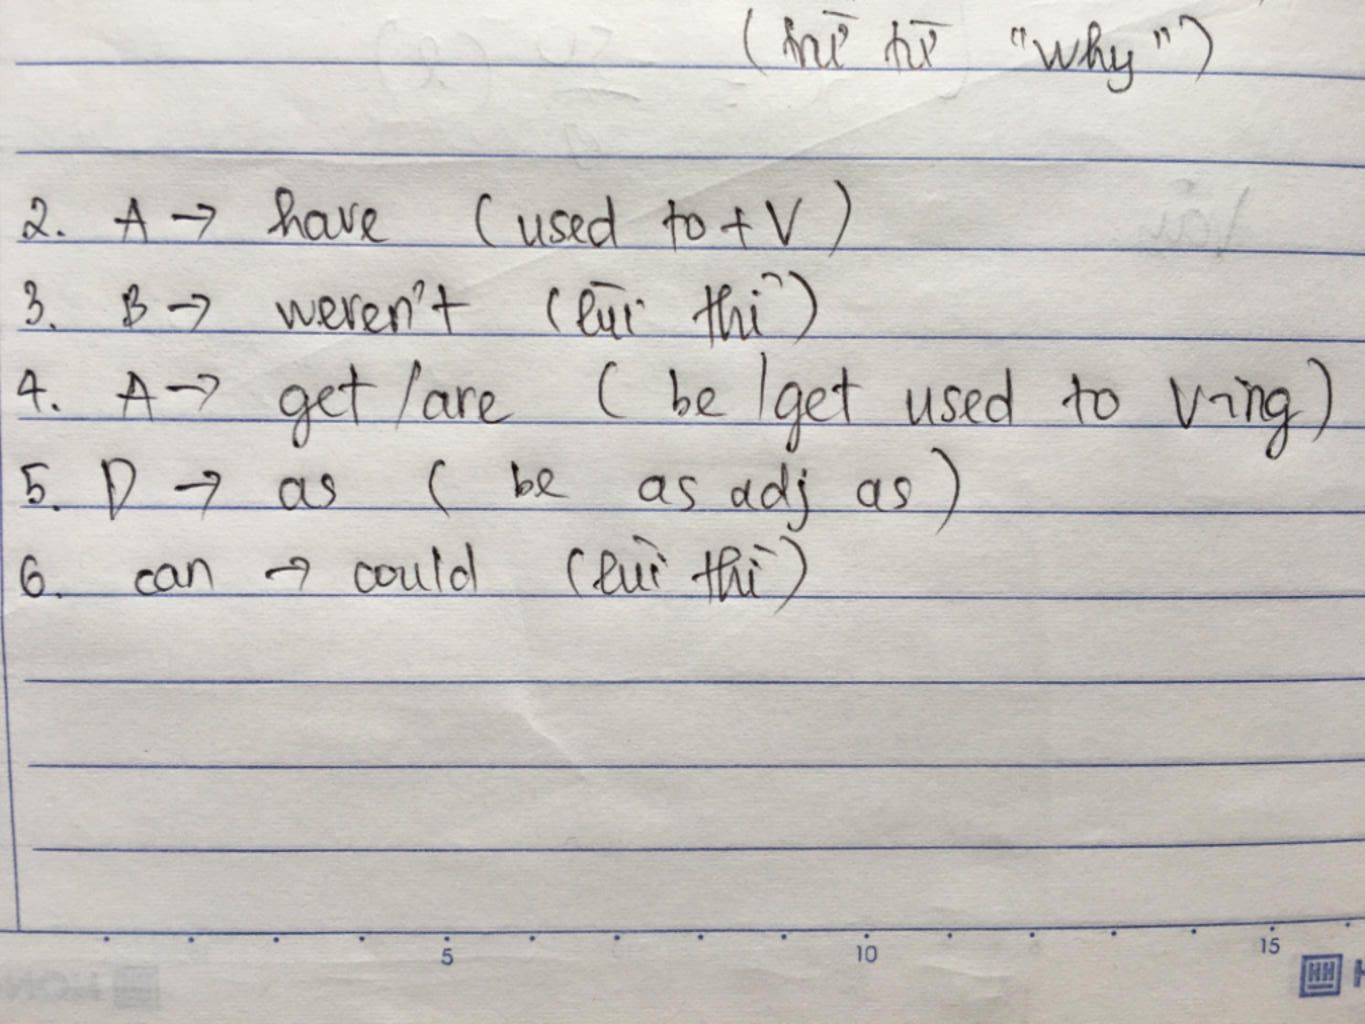 (từ từ "why")
2. A → have (used to + V)
3. B → weren't (lùi thì)
4. A → get / are (be / get used to V-ing)
5. D → as (be as adj as)
6. can → could (lùi thì)
5 10 15